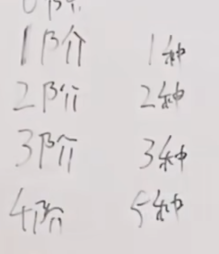 0阶
1阶 1种
2阶 2种
3阶 3种
4阶 5种